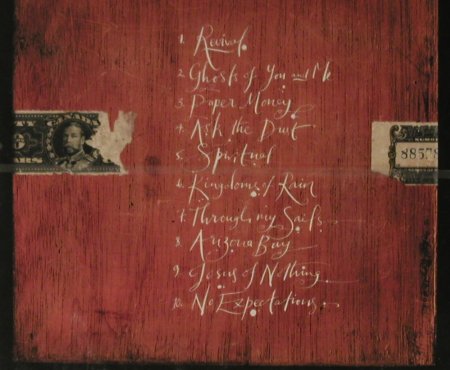 1. Revival
2. Ghosts of You and Me
3. Paper Money
4. Ask the Dust
5. Spiritual
6. Kingdoms of Rain
7. Through my Sails
8. Arizona Bay
9. Jesus of Nothing
10. No Expectations
88578